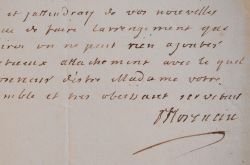 et j'attendray de vos nouvelles
de faire l'arrengement que
on ne peut rien ajouter
attachement avec le quel
d'estre Madame votre
humble et tres obeissant serviteur